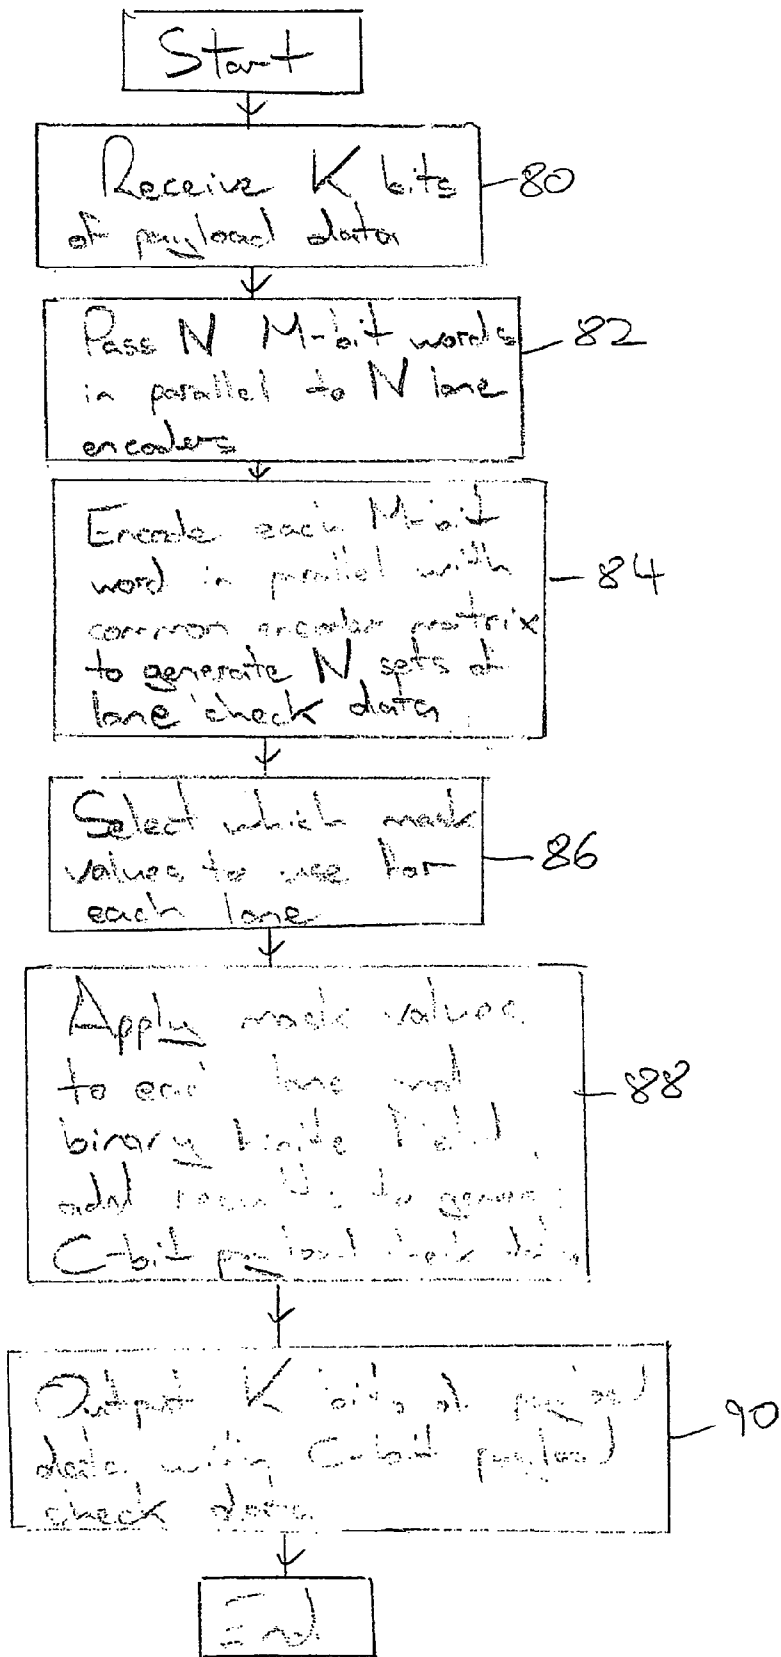 Start
Receive K bits
of payload data
80
Pass N M-bit words
in parallel to N lane
encoders
82
Encode each M-bit
word in parallel with
common encoder matrix
to generate N sets of
lane check data
84
Select which mask
values to use for
each lane
86
Apply mask values
to lane and
binary finite field
add results to
C-bit payload check data
88
Output K bits of payload
data with C-bit payload
check data
90
End